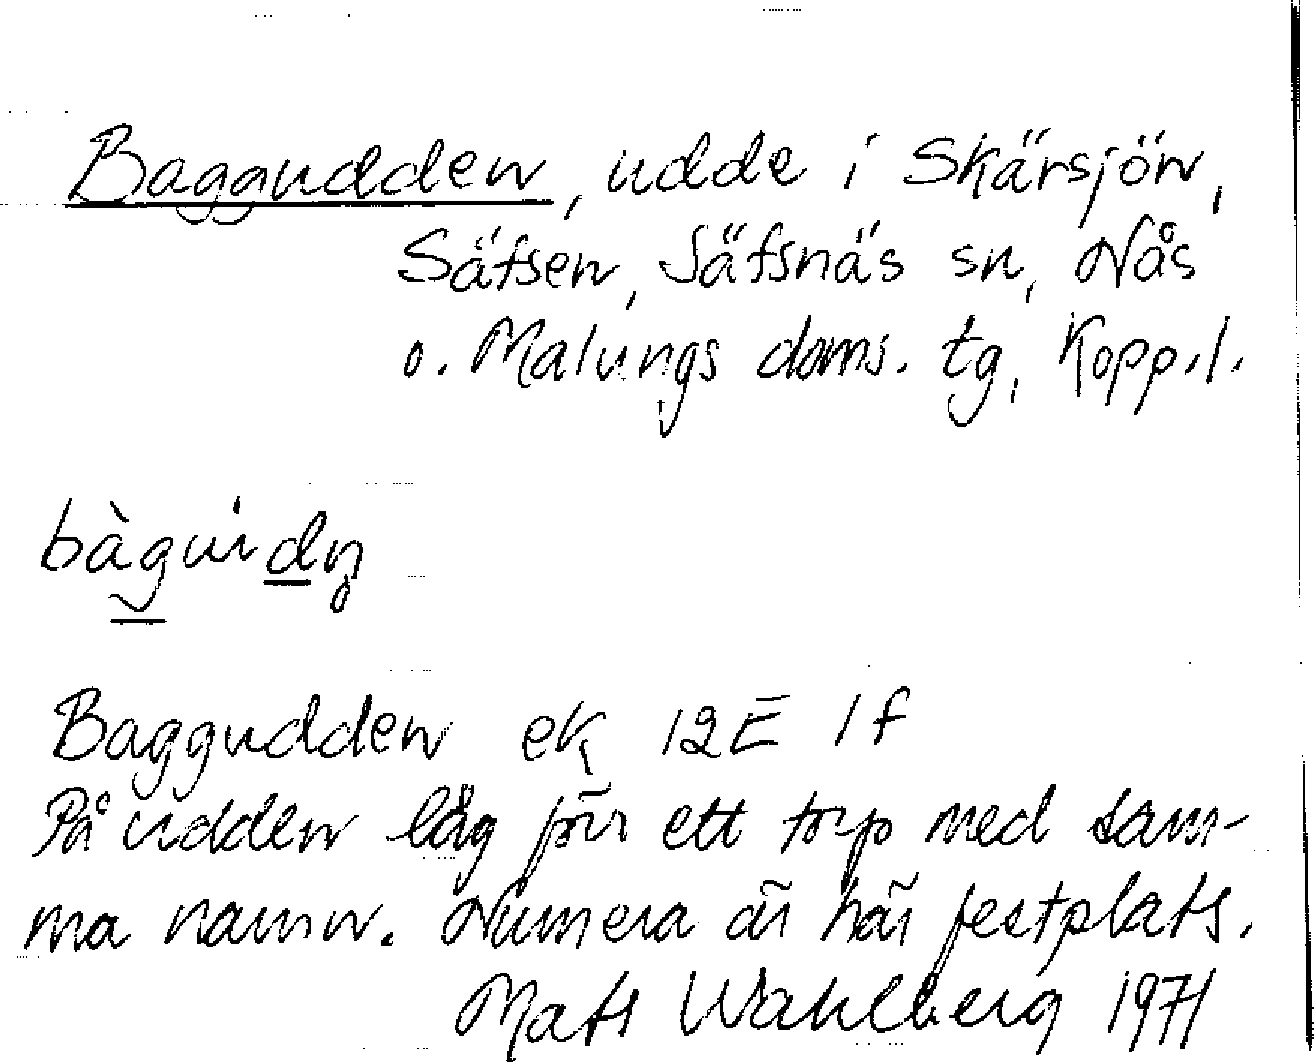 Baggudden, udde i Skärsjön,
Säfsen, Säfsnäs sn, Nås
o. Malungs doms. tg, Kopp.l.
Baggudden ek 12E 1f
På udden låg förr ett torp med sam-
ma namn. Numera är här festplats.
Mats Wahlberg 1971